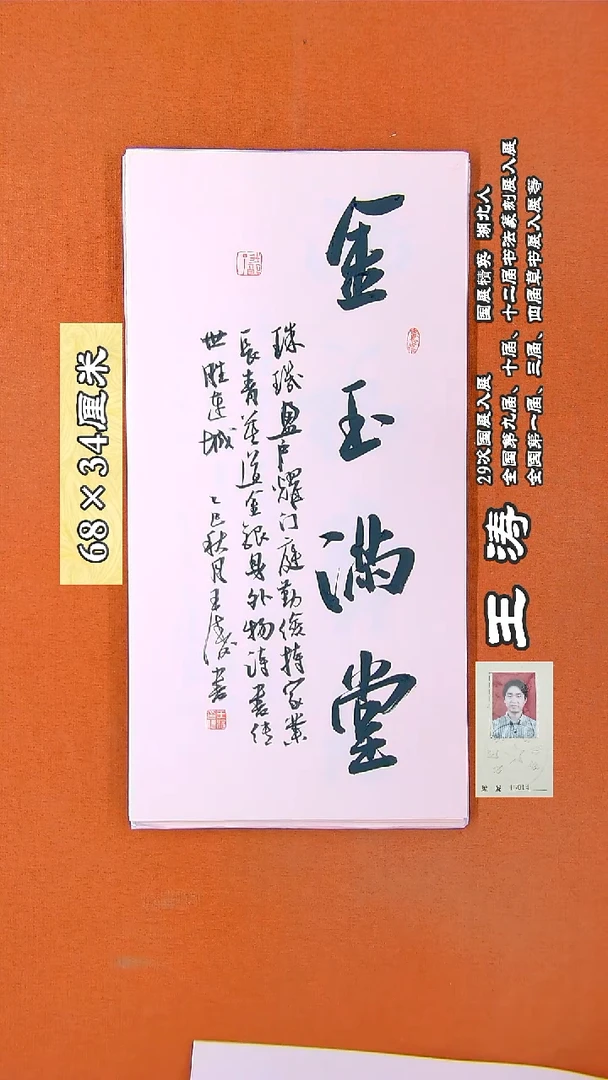 金玉满堂
珠玑盈户耀门庭勤俭持家业
长青莫道金银身外物诗书传
世胜连城 乙巳秋月王涛书
68×34厘米
王涛
29次国展入展 国展精英 湖北人
全国第九届、十届、十二届书法篆刻展入展
全国第一届、三届、四届草书展入展等